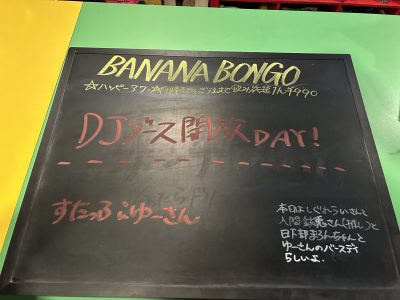 BANANA BONGO
☆ハッピーアワー☆ 飲み放題 1h ¥990
DJブース開放DAY!
すたっふ:ゆーさん
本日は しぐれういさんと
入間 さん(推し)と
日下部まろんちゃんと
ゆーさんのバースデイ
らしいよ.